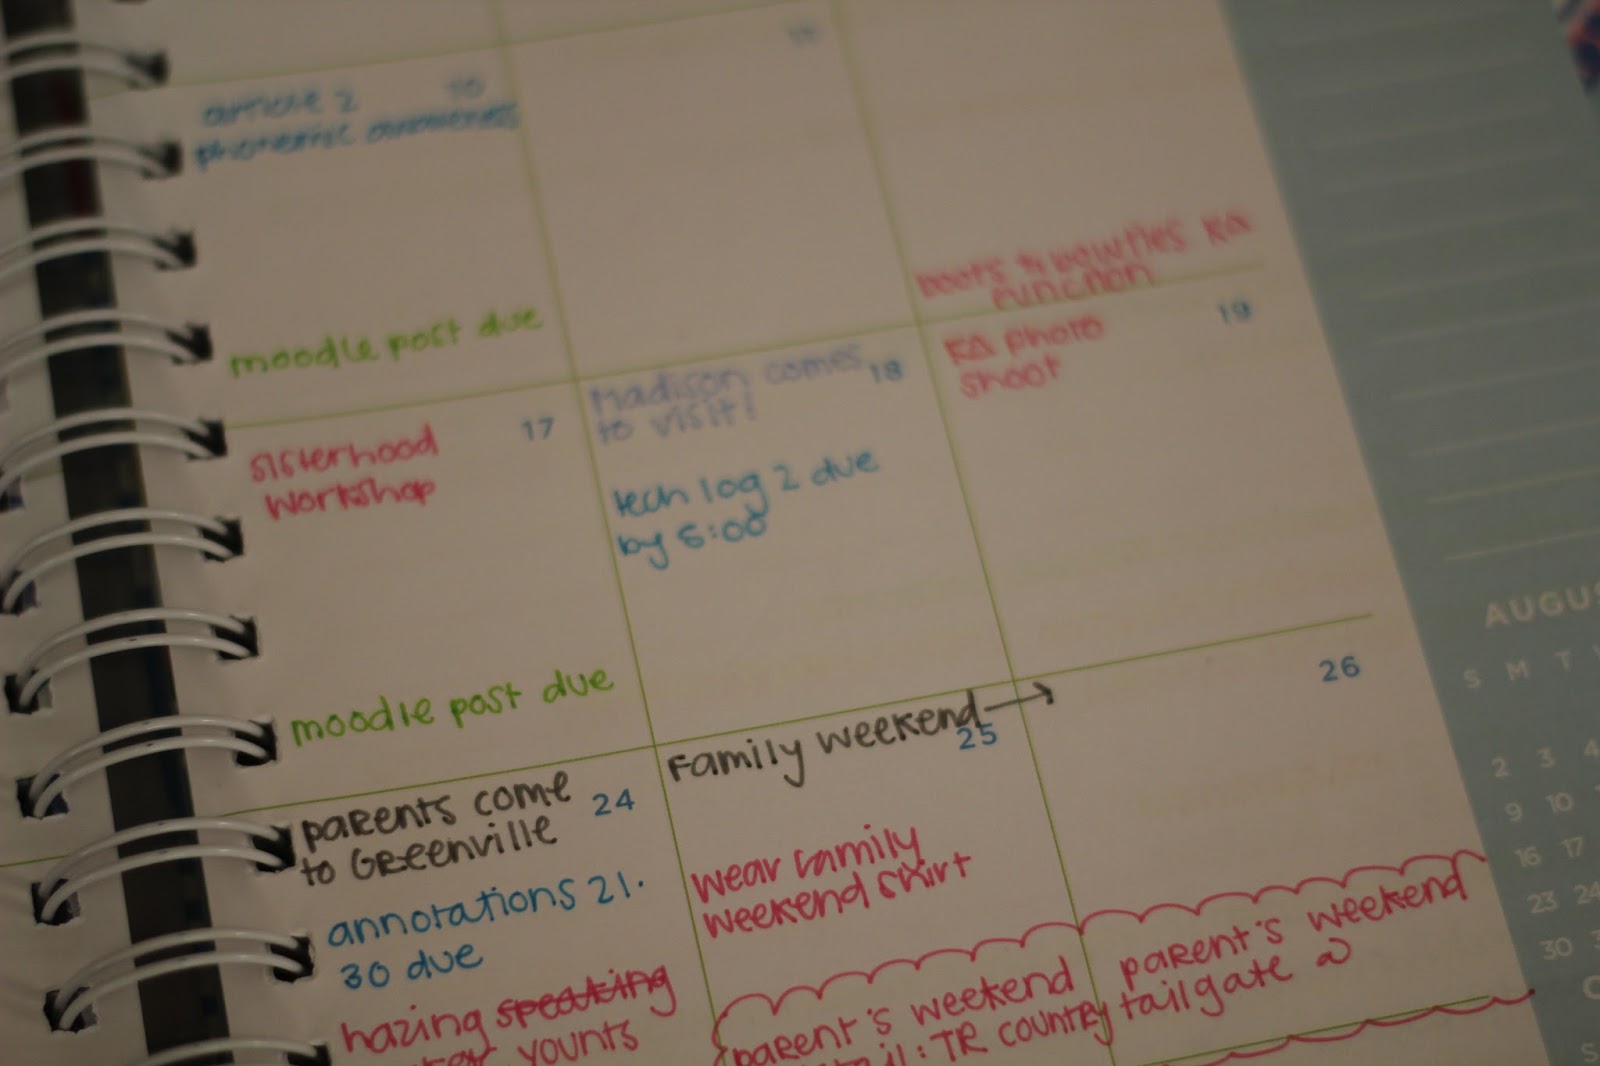 article 2 10
phonemic awareness
moodle post due
11
boots & bowties KΔ
function
sisterhood 17
workshop
moodle post due
Madison comes 18
to visit!
tech log 2 due
by 5:00
KΔ photo 19
shoot
parents come 24
to Greenville
annotations 21.
30 due
hazing speaking
younts
Family weekend → 25
wear family
weekend shirt
parent's weekend
: TR country
26
parent's weekend
tailgate
AUGUS
S M T
2 3 4
9 10
16 17
23 24
30